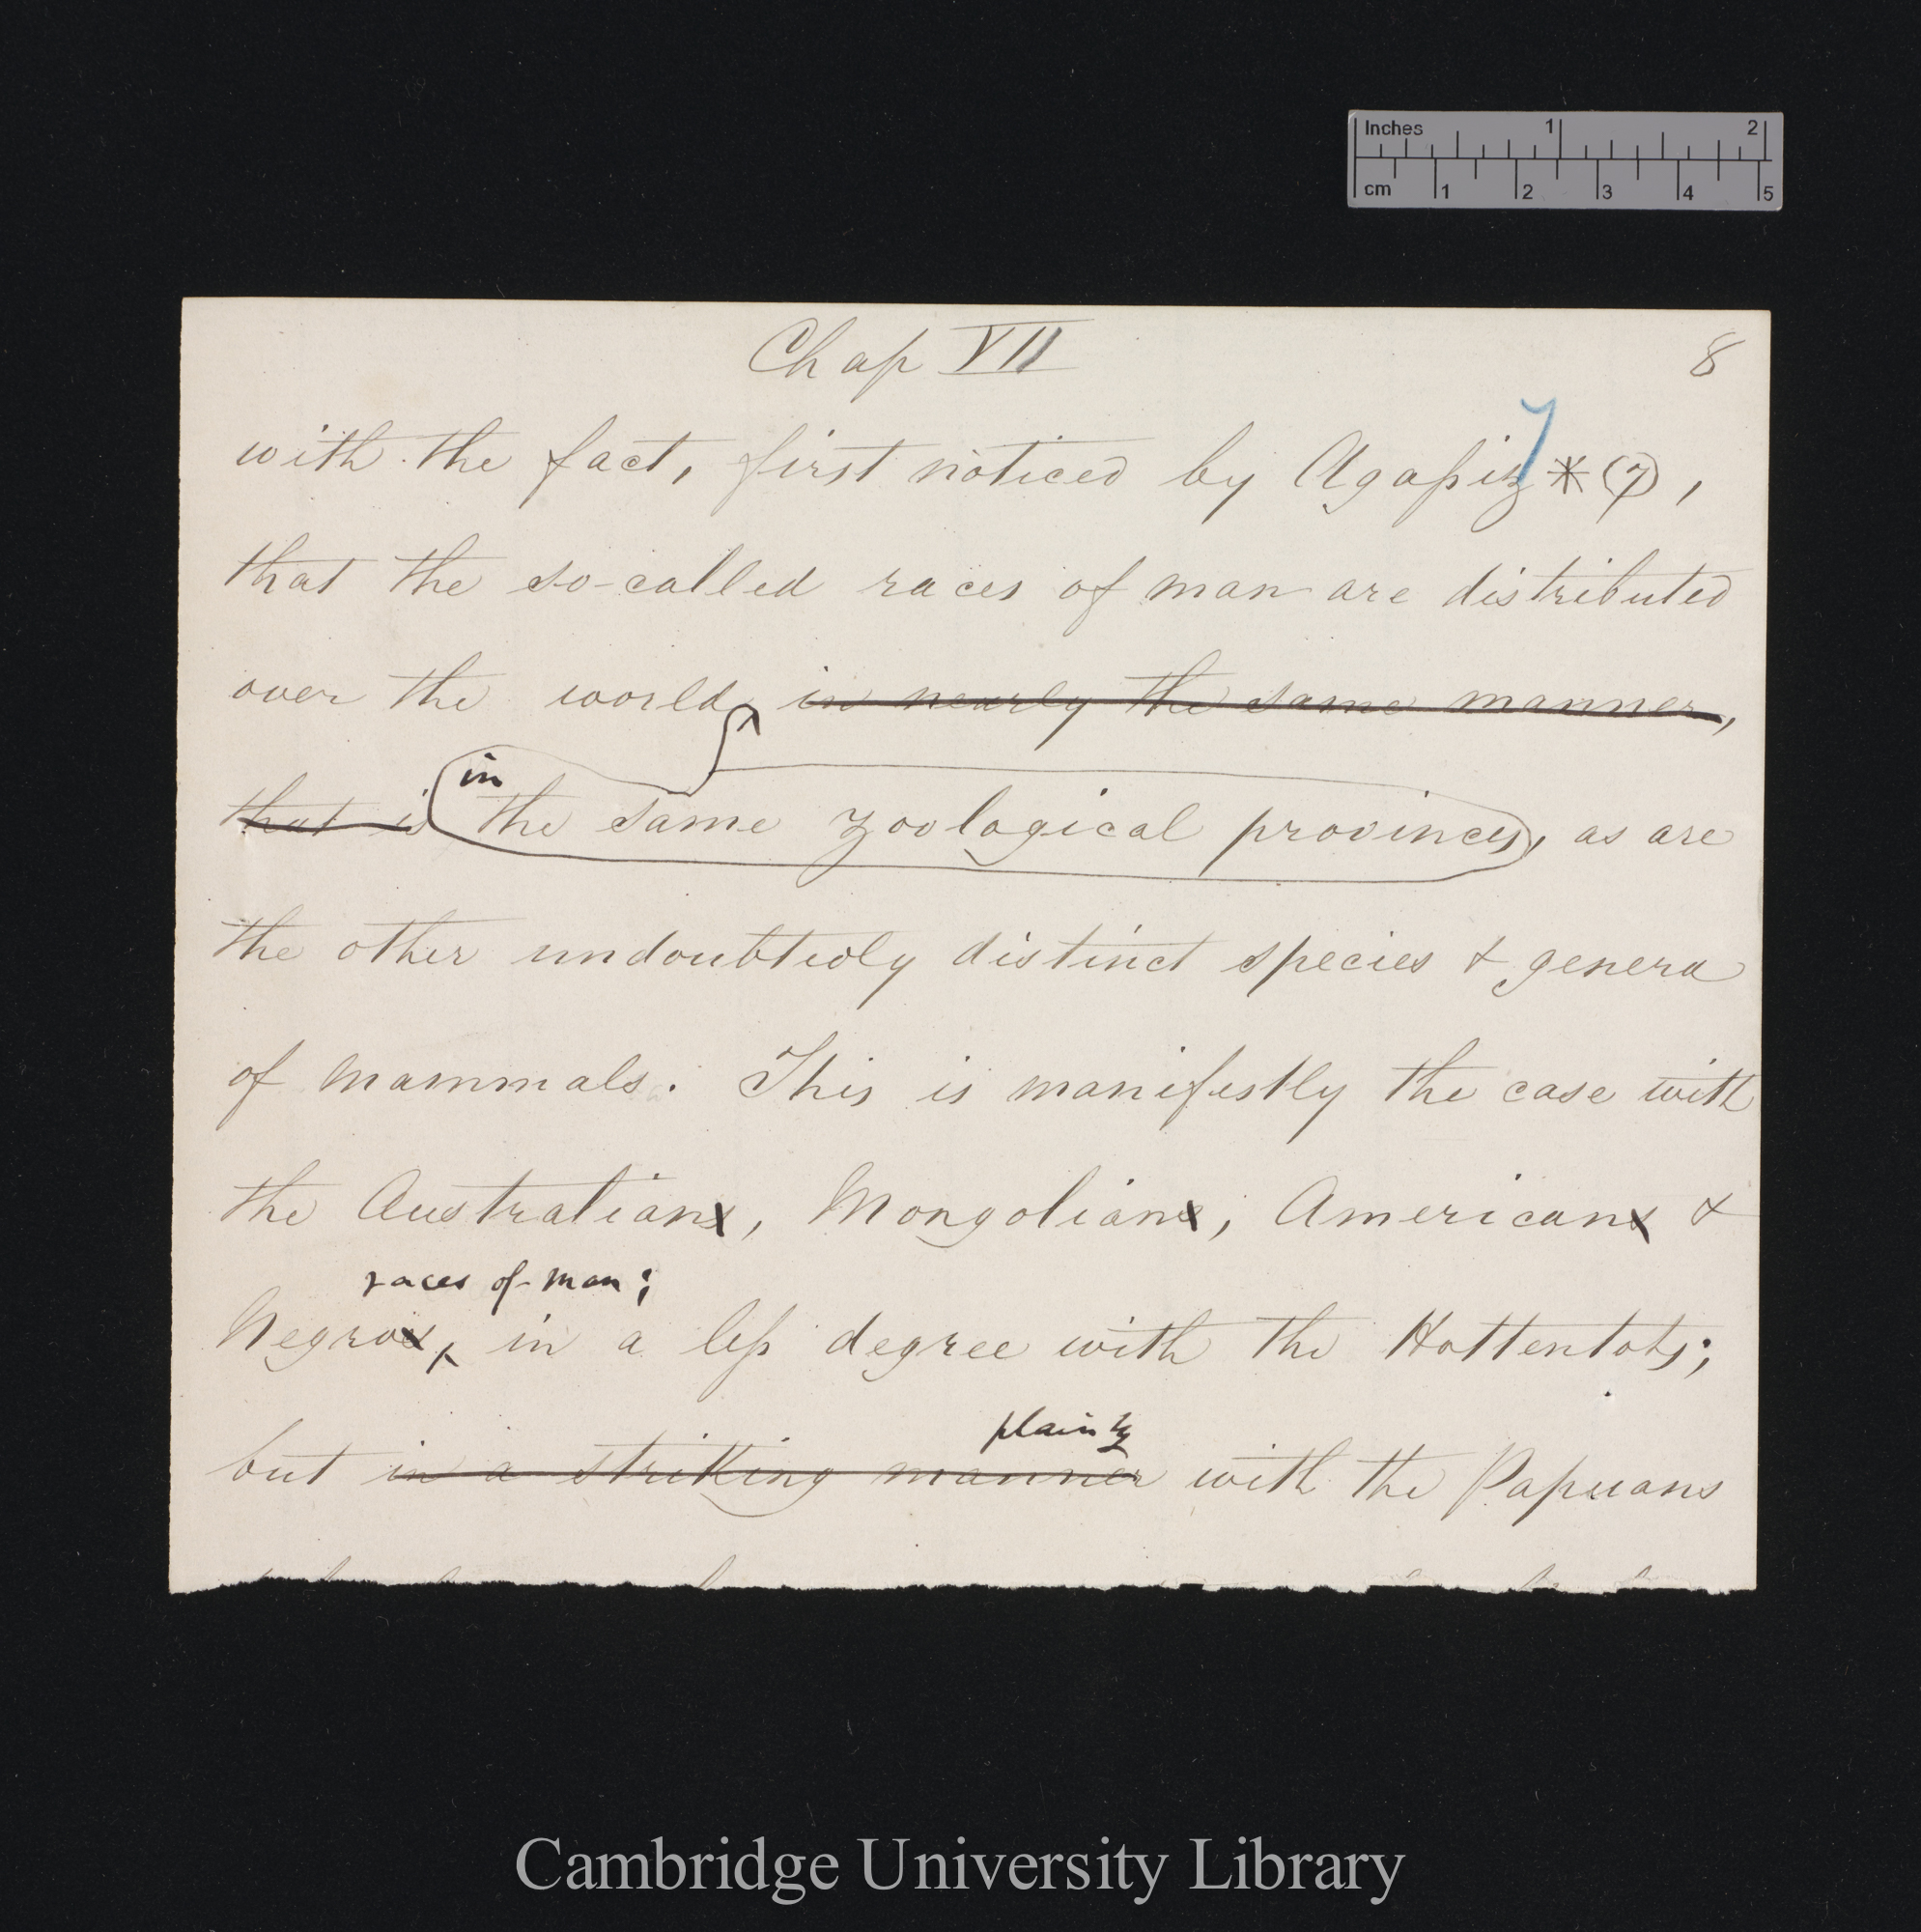 Inches 1 2
cm 1 2 3 4 5
Chap VII 8
7
with the fact, first noticed by Agassiz * (7),
that the so-called races of man are distributed
over the world, in nearly the same manner,
in
that is the same zoological provinces, as are
the other undoubtedly distinct species & genera
of mammals. This is manifestly the case with
the Australians, Mongolians, Americans &
races of man;
Negroes, in a less degree with the Hottentots;
plainly
but in a striking manner with the Papuans
Cambridge University Library